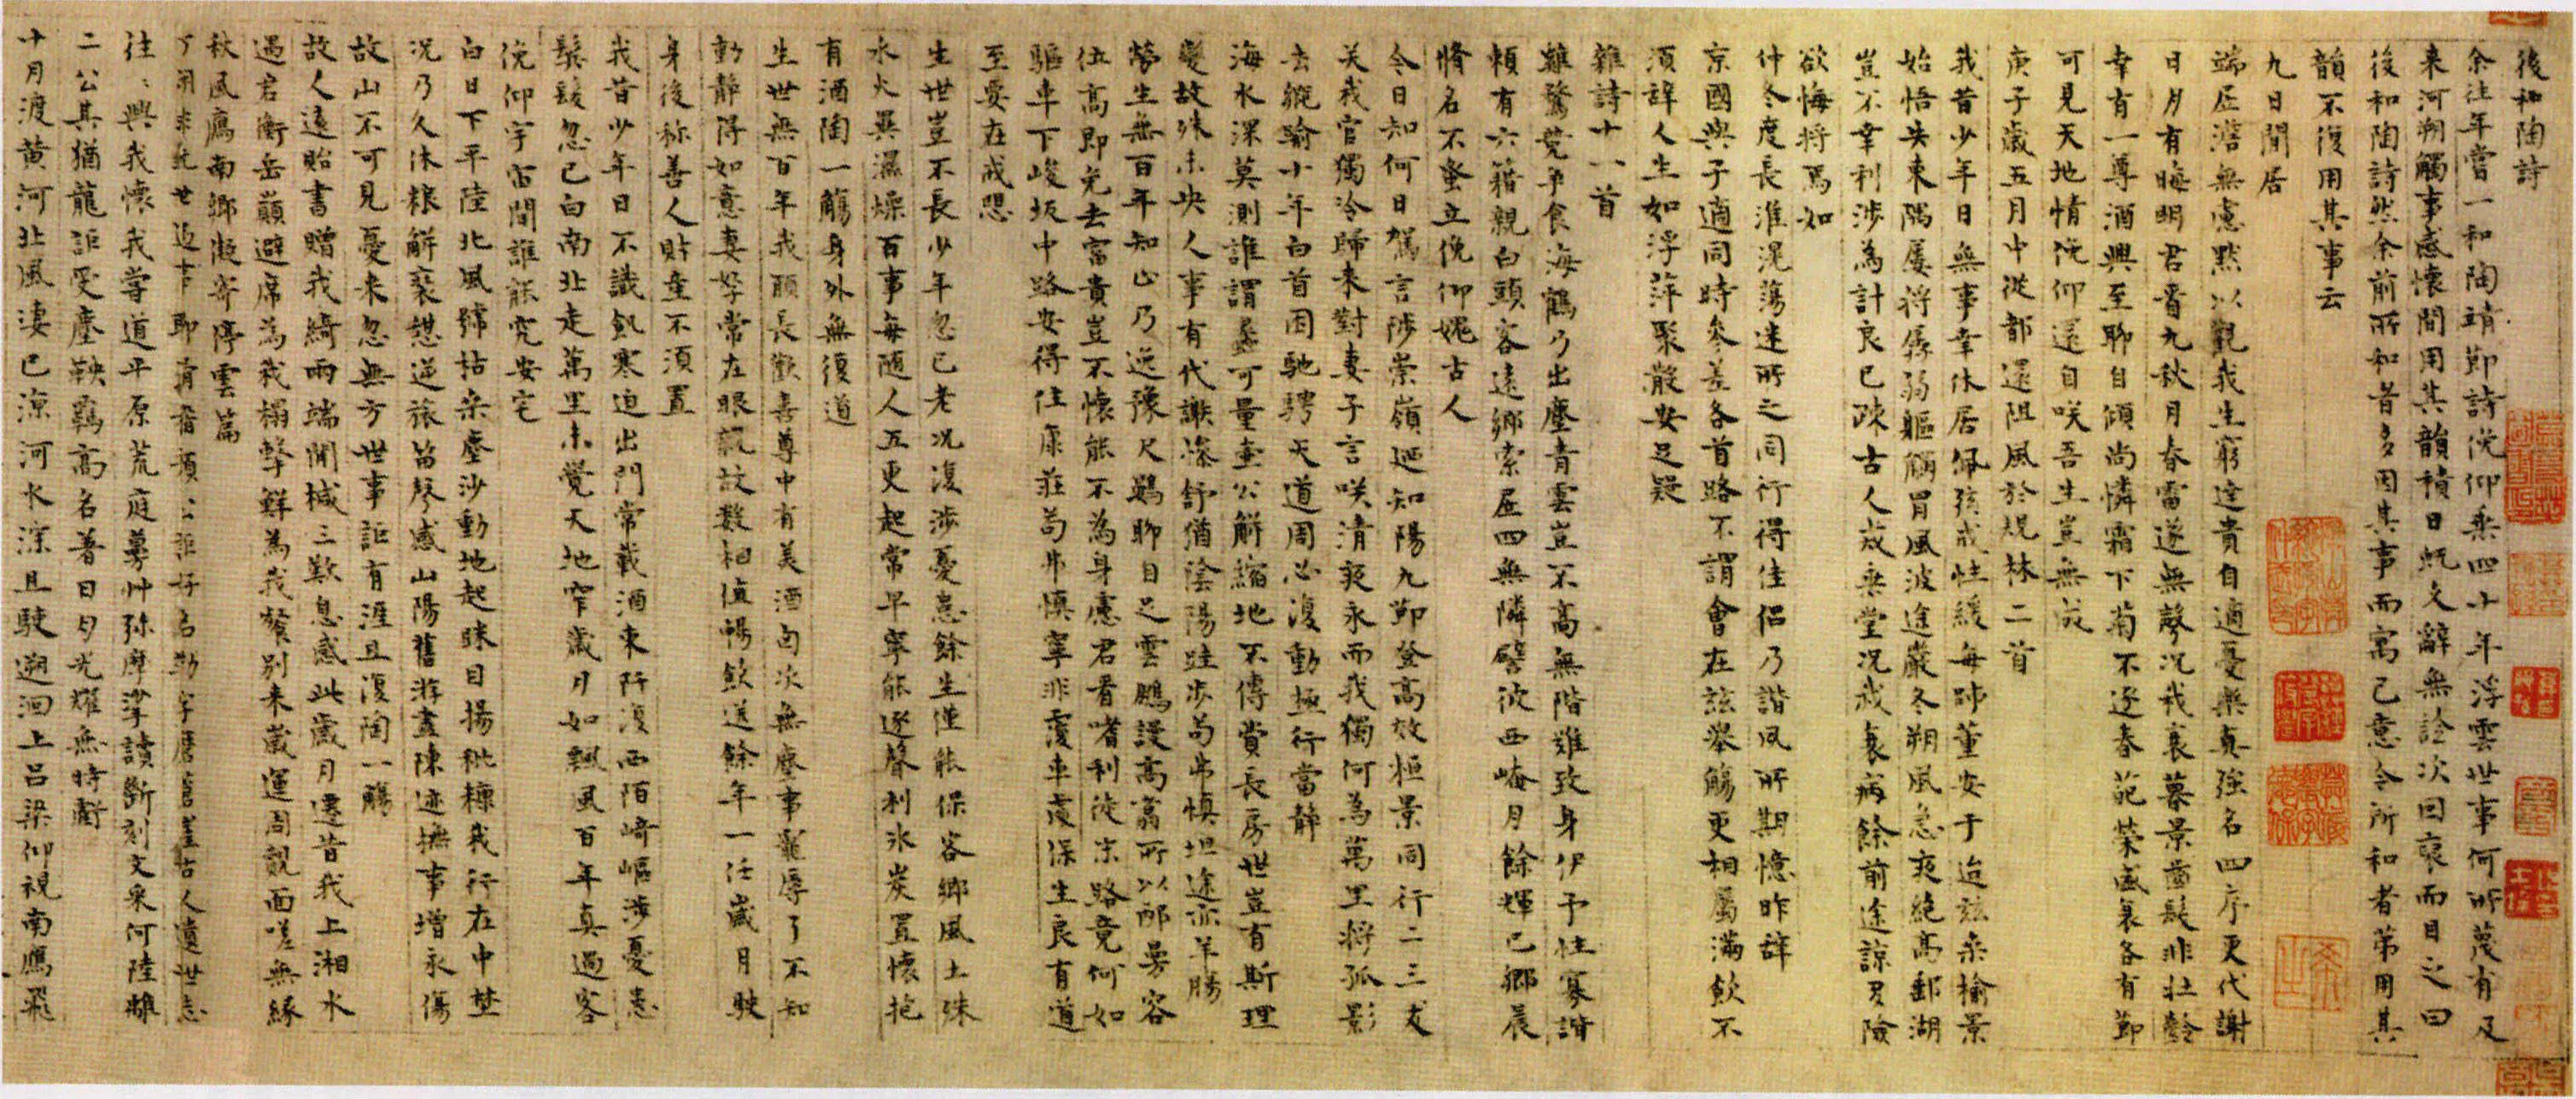 後和陶詩
余往年嘗一和陶靖節詩俛仰乗四十年浮雲世事何所蔑有及
来河朔觸事感懷間用其韻積日既久辭無詮次因裒而目之曰
後和陶詩然余前所和者多因其事而寓己意今所和者第用其
韻不復用其事云
九日閒居
端居澹無慮黙以觀我生窮達貴自適憂樂真強名四序更代謝
日月有晦明君看九秋月春雷遂無聲况我衰暮景齒髮非壮齡
幸有一尊酒興至聊自傾尚憐霜下菊不逐春葩榮盛衰各有節
可見天地情俛仰還自咲吾生豈無成
庚子歲五月中從都還阻風於規林二首
我昔少年日無事幸休居佩弦戒性緩每師董安于迨兹桑榆景
始悟失東隅屡将孱弱軀觸冒風波途嚴冬朔風急夜絶高郵湖
豈不幸利渉為計良已疎古人戒乗堂况我衰病餘前途諒多險
欲悔将焉如
仲冬度長淮滉蕩迷所之同行得佳侣乃諧夙所期憶昨辞
京國與子適同時参差各首路不謂會在兹舉觴更相屬滿飲不
須辞人生如浮萍聚散安足疑
雜詩十一首
雞鶩競争食海鶴乃出塵青雲豈不高無階難致身伊予性寡諧
頼有六籍親白頭客遠鄉索居四無隣譬彼西崦月餘輝已鄉晨
脩名不蚤立俛仰媿古人
今日知何日駕言陟崇嶺廼知陽九節登高效桓景同行二三友
关我官獨冷歸来對妻子言咲清夜永而我獨何為萬里将孤影
去縱踰十年白首困馳騁天道周必復動極行當静
海水深莫測誰謂蠡可量壷公解縮地不傳費長房世豈有斯理
變故殊未央人事有代謝慘舒猶陰陽跬步苟弗慎坦途亦羊腸
勞生無百年知止乃逸豫尺鷃聊自足雲鵬謾高翥所以邴曼容
位高即免去富貴豈不懐能不為身慮君看嗜利徒末路竟何如
驅車下峻坂中路安得住康莊苟弗慎寧非覆車虞保生良有道
至要在戒懼
生世豈不長少年忽已老况復渉憂患餘生僅能保客鄉風土殊
水火異濕燥百事每随人五更起常早寧能逐聲利氷炭置懷抱
有酒陶一觴身外無復道
生世無百年我願長歡喜尊中有美酒勾次無塵事寵辱了不知
動静得如意妻孥常在眼親故数相值暢飲送餘年一任歲月駛
身後称善人貯壷不須置
我昔少年日不識飢寒迫出門常載酒東阡復西陌﨑嶇渉憂患
鬓髪忽已白南北走萬里未覺天地窄歲月如飄風百年真過客
俛仰宇宙間誰能究安宅
白日下平陸北風號枯桑塵沙動地起眯目揚粃糠我行在中埜
况乃久休粮解裘憩逆旅笛琴感山陽舊游盡陳迹撫事增永傷
故山不可見憂来忽無方世事詎有涯且復陶一觴
故人遠貽書贈我綺兩端開椷三歎息感此歲月遷昔我上湘水
過君衡岳巔避席為我榻擊鮮為我餐别来歲運周覿面嗟無縁
秋風鴈南鄉凝寄停雲篇
往〻興我懷我嘗道平原荒庭蔓艸弥摩挲讀斷刻文采何陸離
二公其猶龍詎受塵鞅羈高名著日月光耀無時虧
十月渡黄河北風淒已凉河水深且駛遡洄上吕梁仰視南鴈飛